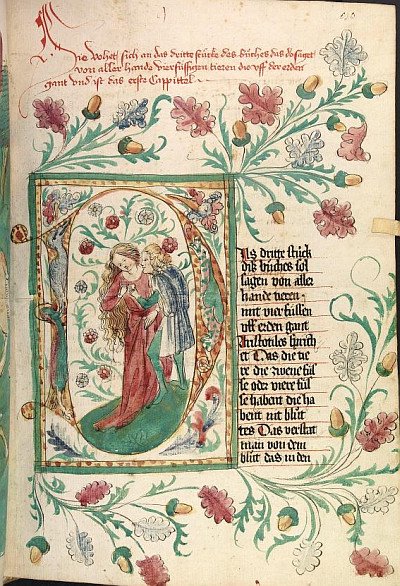 Hie vohet sich an das dritte stücke des büches das do saget
von aller hande vierfüssigen tieren die vff der erden
gant vnd ist das erste Cappittel
As dritte stück
diß büches sol
sagen von aller
hande tieren
mit vier füssen
vff erden gant
Aristotiles sprich
et Das die tie
re die zwene füs
se oder viere füs
se habent die ha
bent mit blüt
tes Das verstat
man von dem
blüt das in den